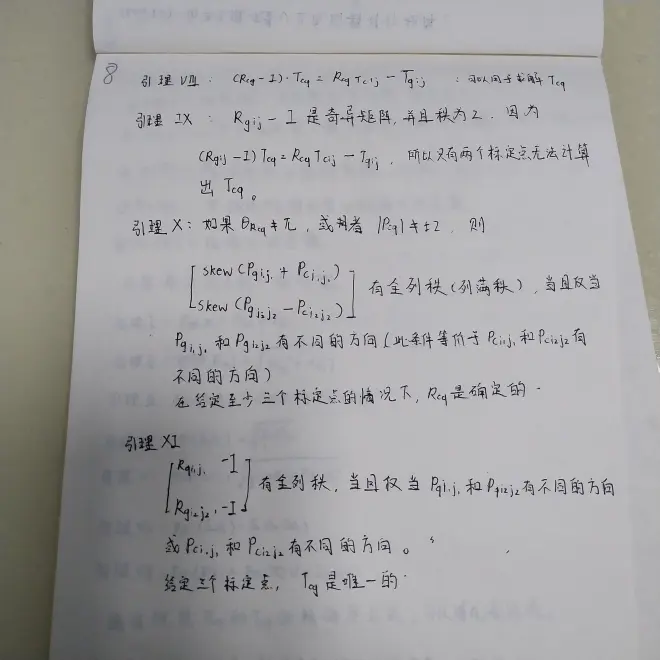 8
引理 VIII: (Rcg-I)·Tcg = Rcg Tcij - Tgij :可以用于求解 Tcg
引理 IX : Rgij - I 是奇异矩阵,并且秩为2. 因为
(Rgij-I)Tcg = Rcg Tcij - Tgij, 所以只有两个标定点无法计算
出 Tcg。
引理 X: 如果 θRcg ≠ π, 或者 |Pcg| ≠ ±2, 则
[skew(Pgi₁j₁ + Pci₁j₁)
skew(Pgi₂j₂ - Pci₂j₂)] 有全列秩(列满秩), 当且仅当
Pgi₁j₁ 和 Pgi₂j₂ 有不同的方向(此条件等价于 Pci₁j₁ 和 Pci₂j₂ 有
不同的方向)
在给定至少三个标定点的情况下, Rcg 是确定的.
引理 XI
[Rgi₁j₁ -I
Rgi₂j₂ -I] 有全列秩, 当且仅当 Pgi₁j₁ 和 Pgi₂j₂ 有不同的方向
或 Pci₁j₁ 和 Pci₂j₂ 有不同的方向。
给定三个标定点, Tcg 是唯一的.